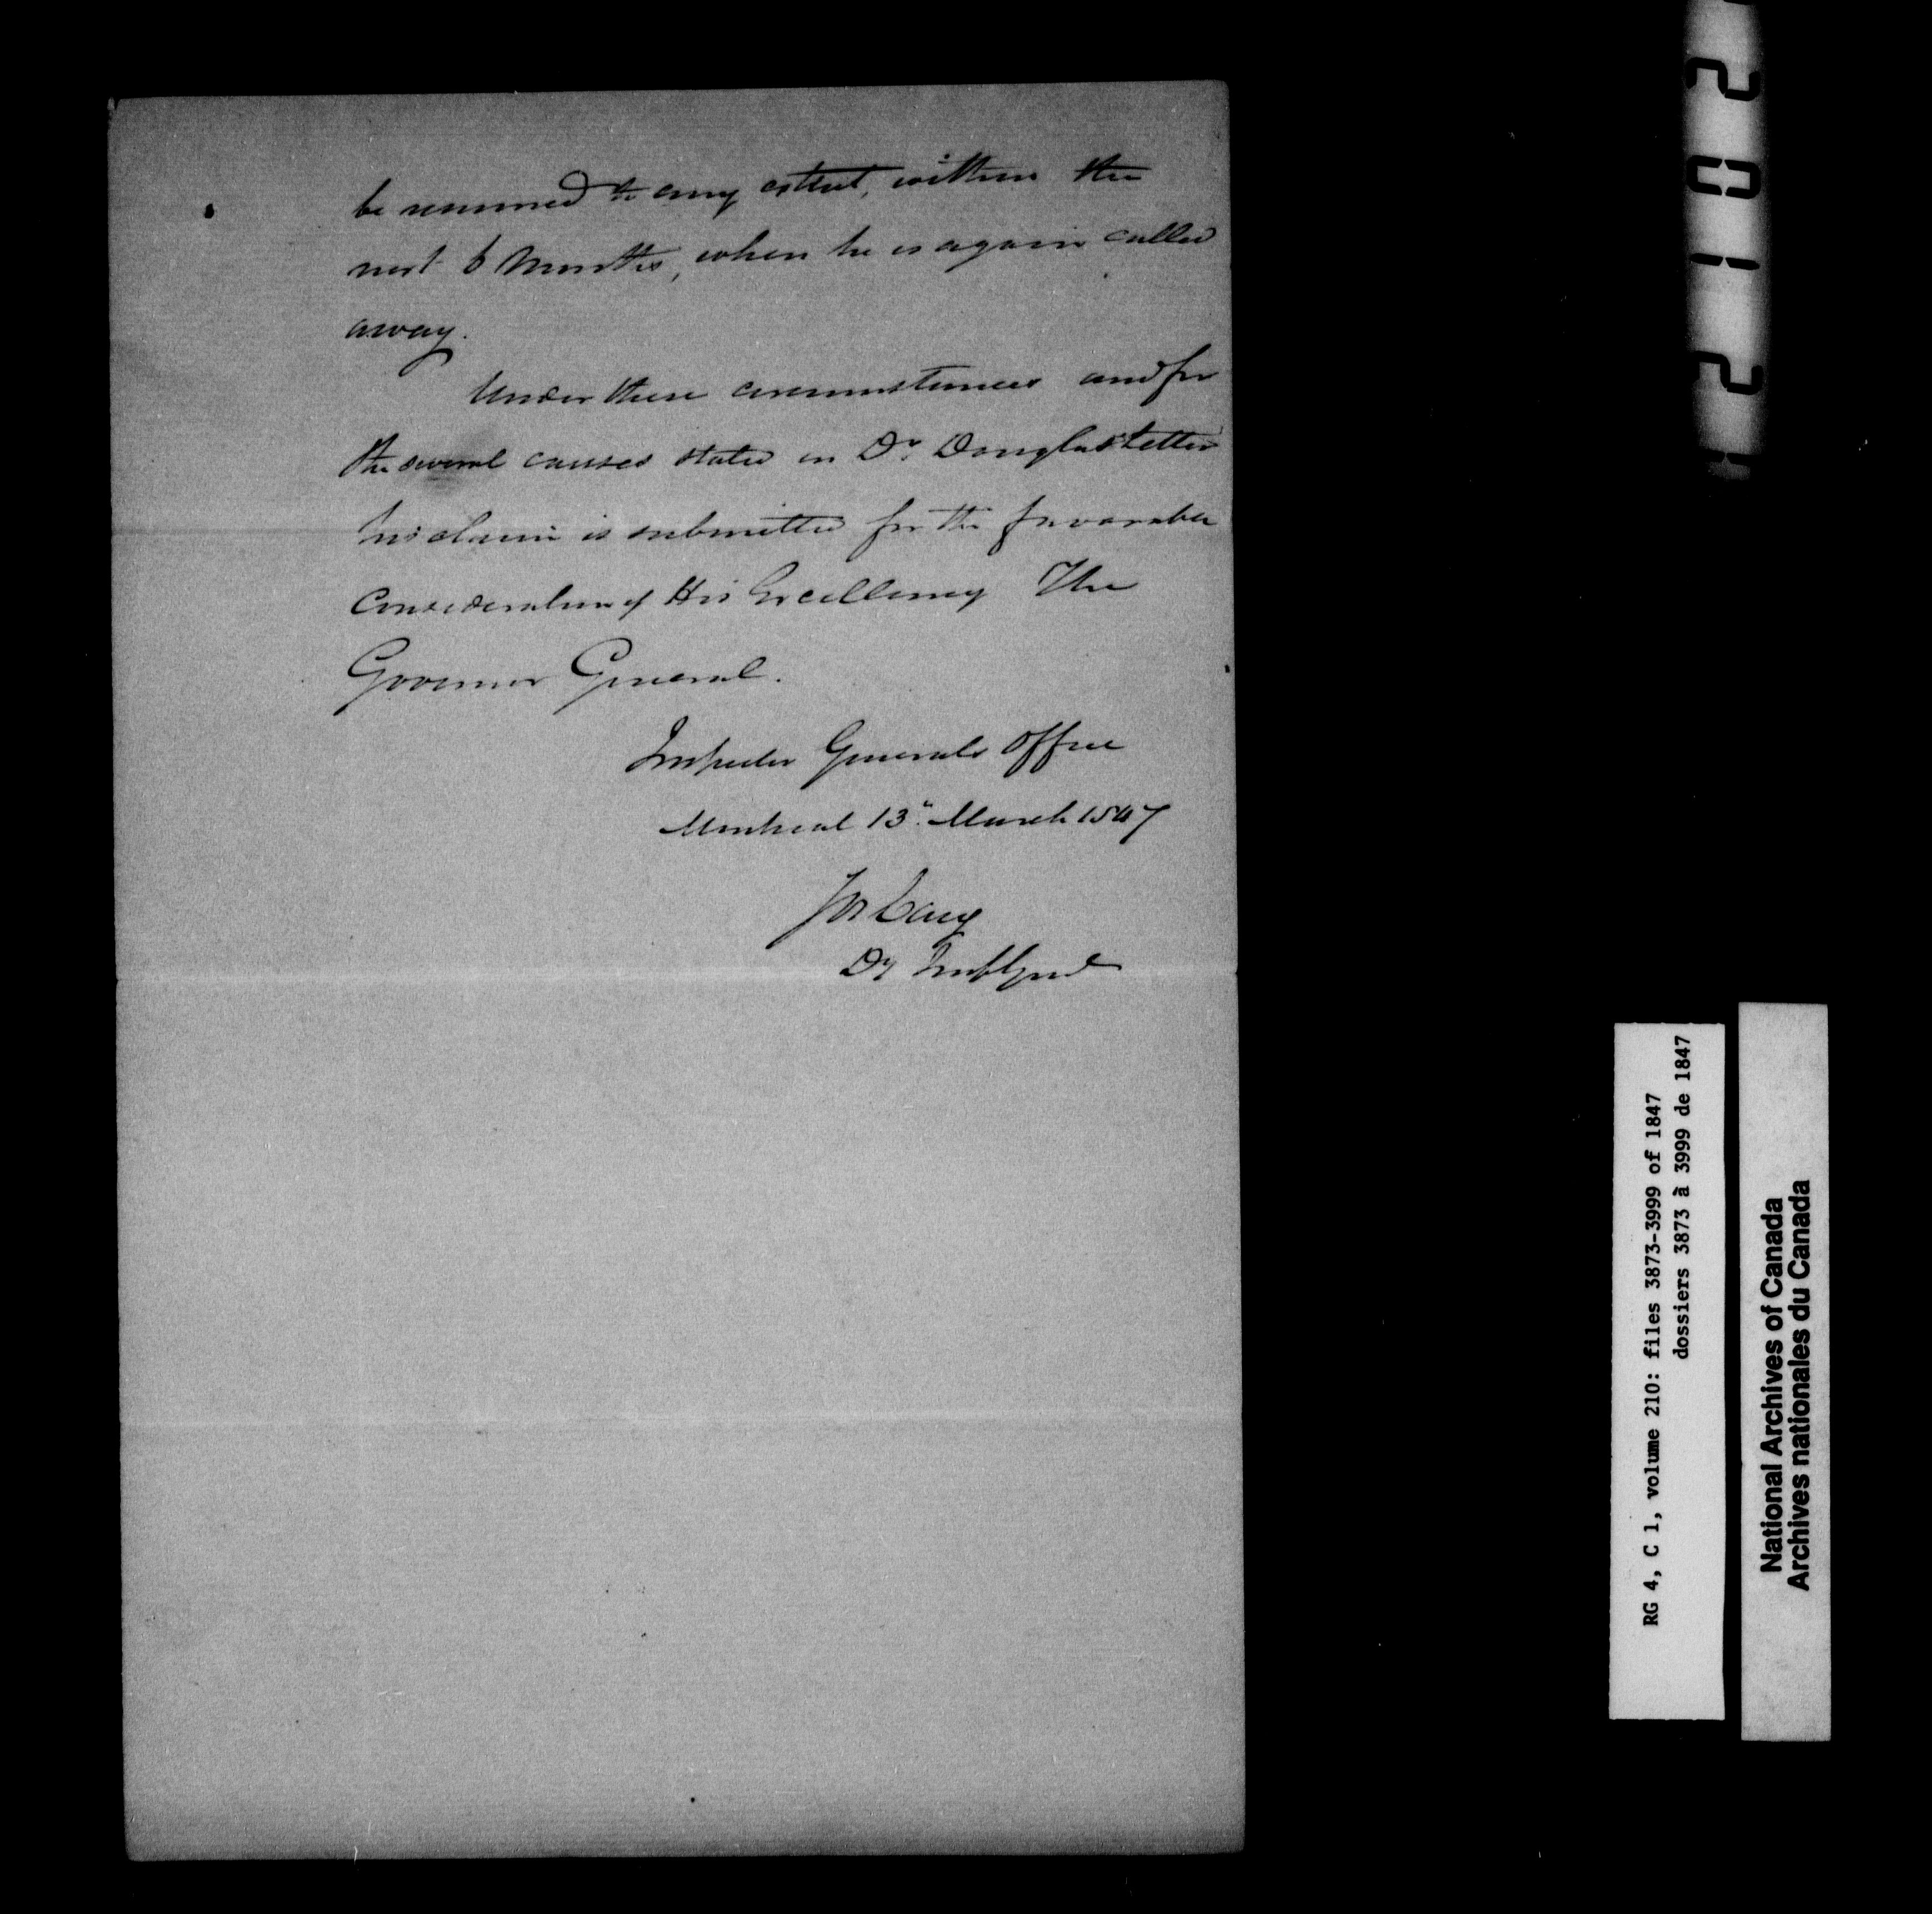 be resumed to any extent, within the
next 6 Months, when he is again called
away.
Under these circumstances and for
the several causes stated in Dr. Douglas Letter
his claim is submitted for the favorable
Consideration of His Excellency The
Governor General.
Inspector Generals Office
Montreal 13" March 1847
Jos Cary
Dy Insp Genl
2012
RG 4, C 1, volume 210: files 3873-3999 of 1847
dossiers 3873 à 3999 de 1847
National Archives of Canada
Archives nationales du Canada